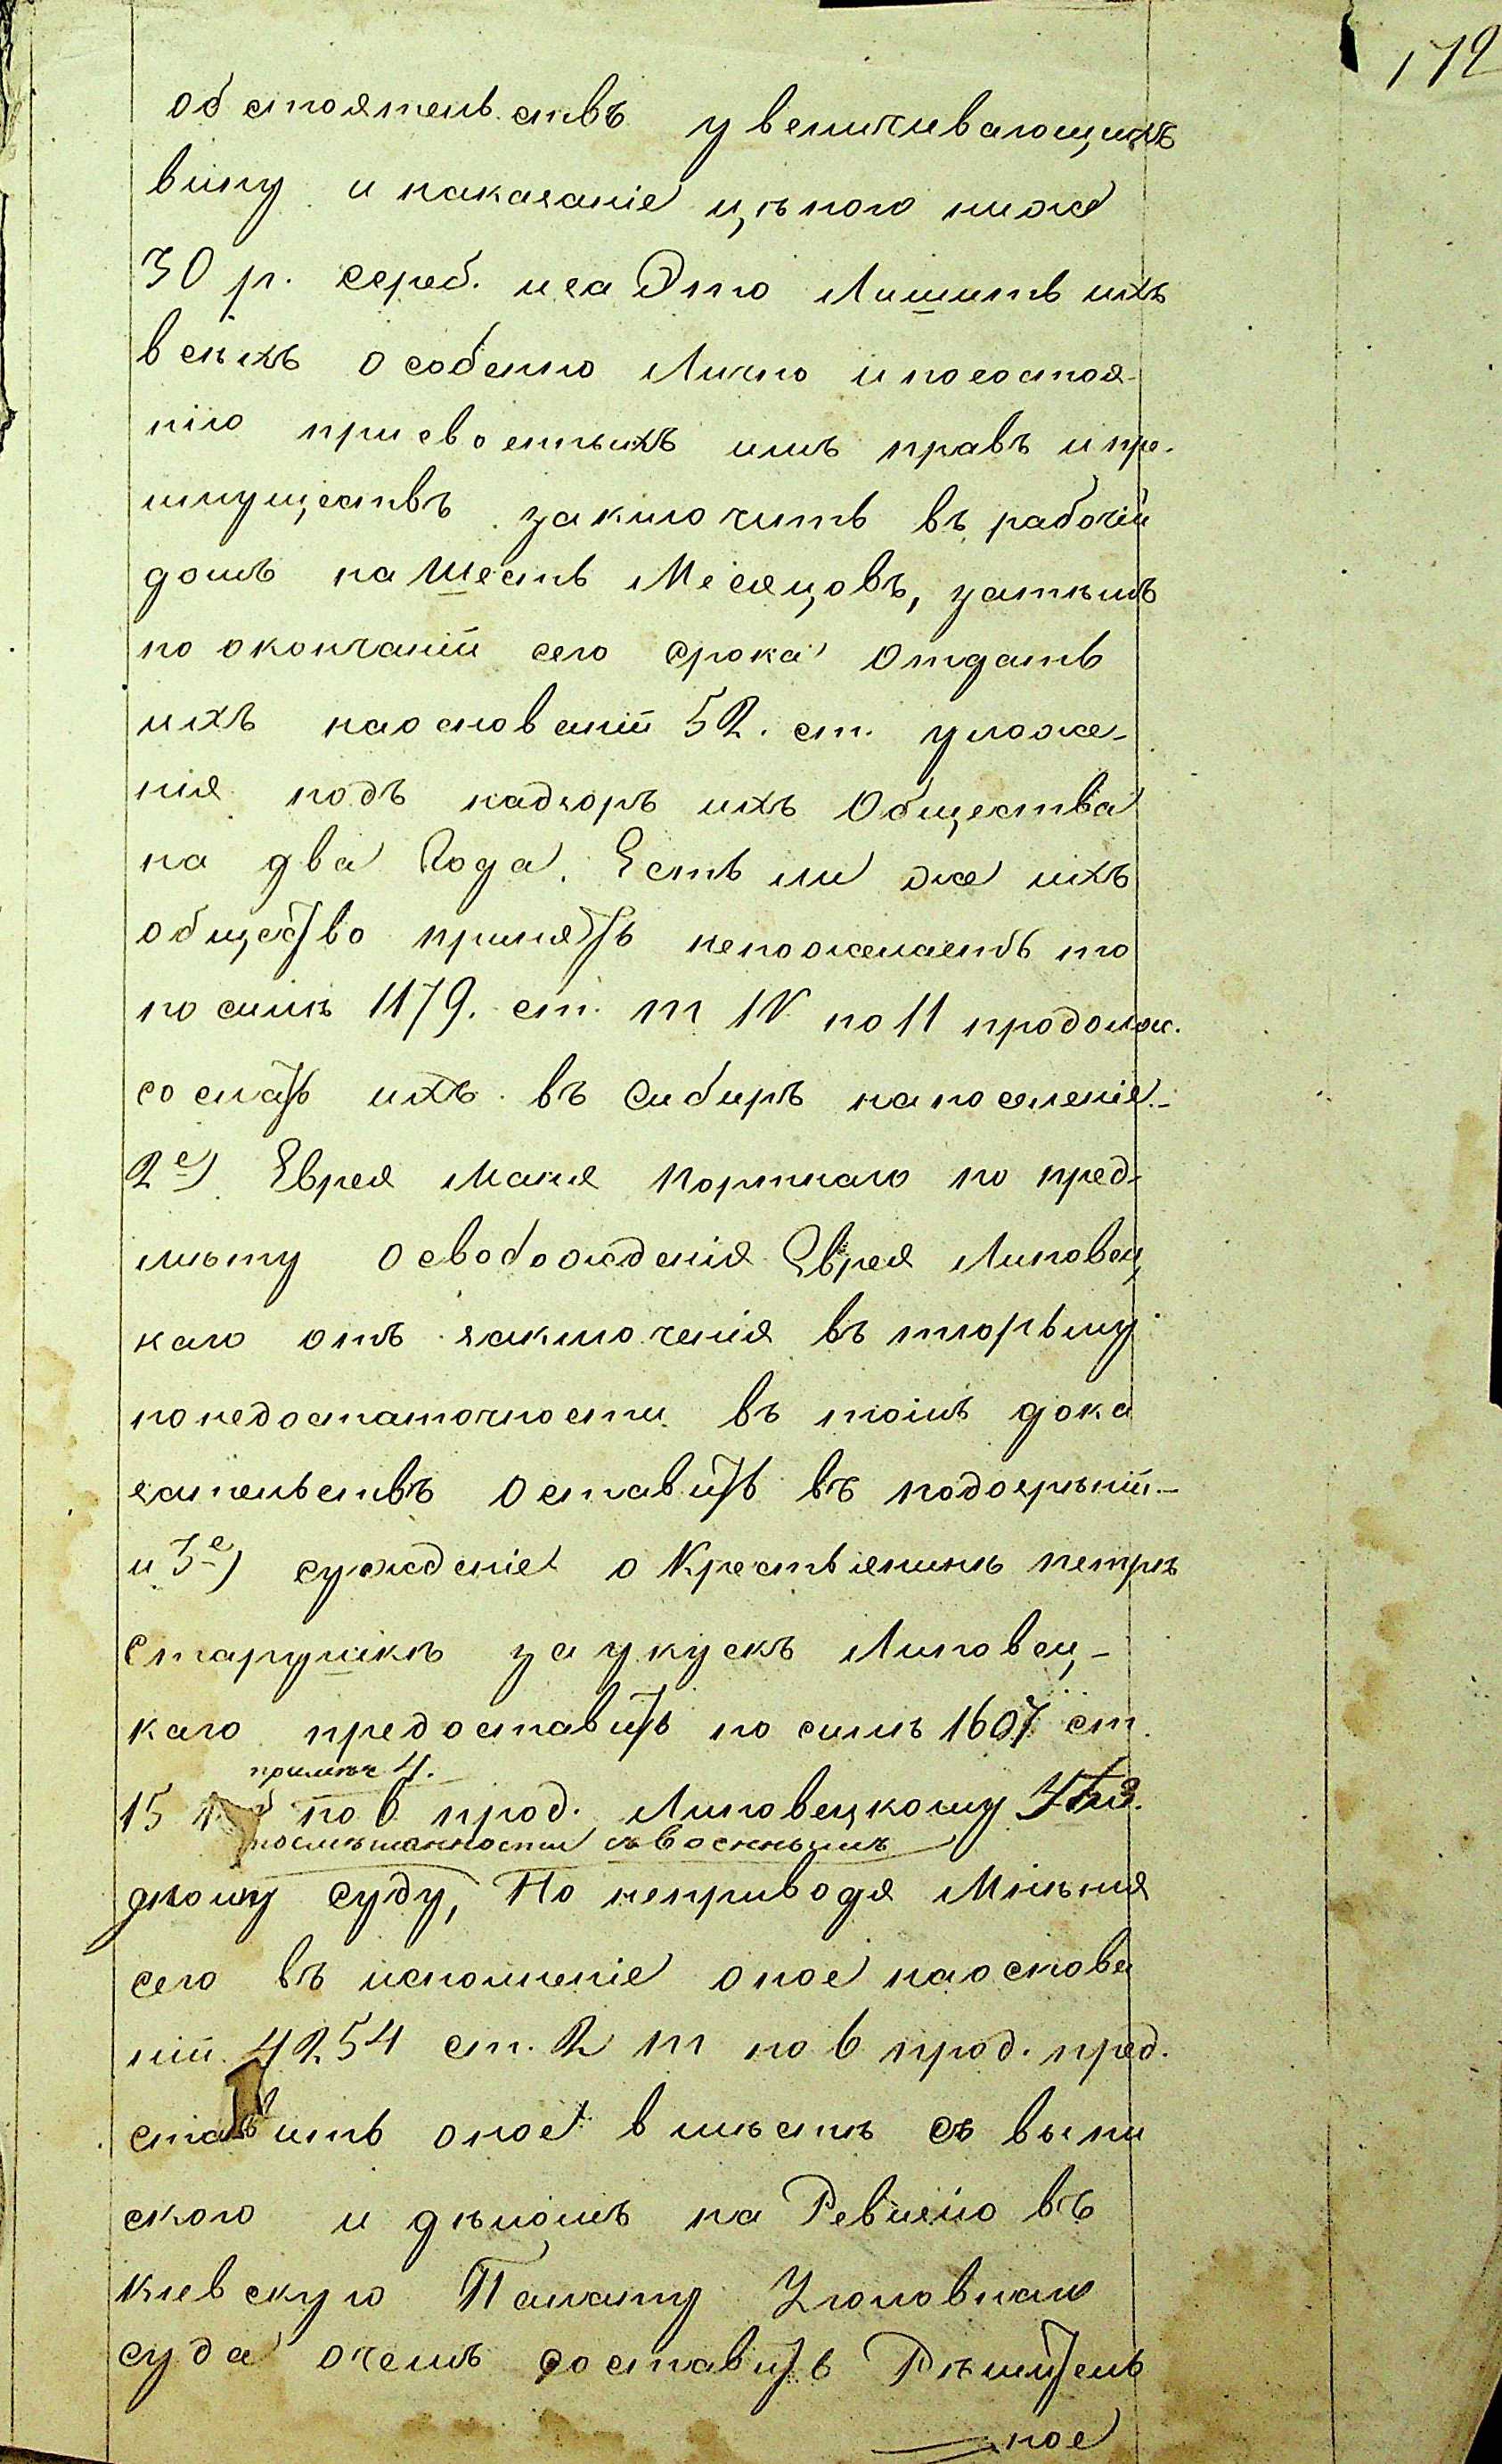 172
обстоятельствъ увеличивающихъ
вину и наказаніе цѣною ниже
30 р. сереб. иза Это Лишить ихъ
всѣхъ особенно Лично и посостоя-
нію присвоенныхъ имъ правъ и пре-
имуществъ заключить въ рабочій
домъ на Шесть Месяцовъ, затѣмъ
по окончаніи сего срока отдать
ихъ наоснованіи 52. ст. уложе-
нія подъ надзоръ ихъ Общества
на два Года. Есть ли же ихъ
общество принять непожелаетъ то
по силѣ 1179. ст. т IV по 11 продолж.
сослать ихъ въ Сибирь напоселеніе.-
2е) Еврея Маня Портнаго по пред-
мѣту освобожденія Еврея Липовец
каго отъ заключенія въ тюрьму
понедостаточности въ томъ дока
зательствъ Оставить въ подозрѣніи.-
и 3е) сужденіе о Крестьянинѣ Петрѣ
Старушкѣ за укускъ Липовец-
каго предоставить по силѣ 1607 ст.
примѣч 4.
15 по 6 прод. Липовецкому Уѣз.
посмѣшанности съ Военнымъ
дному суду, Но неприводя Мнѣнія
сего въ исполненіе оное наоснова
ніи 4254 ст. 2 т по 6 прод. пред-
ставить оное вмѣстѣ съ выпи
скою и дѣломъ на Ревизію въ
Кіевскую Палату Уголовнаго
суда очемъ составить Рѣшитель
ное